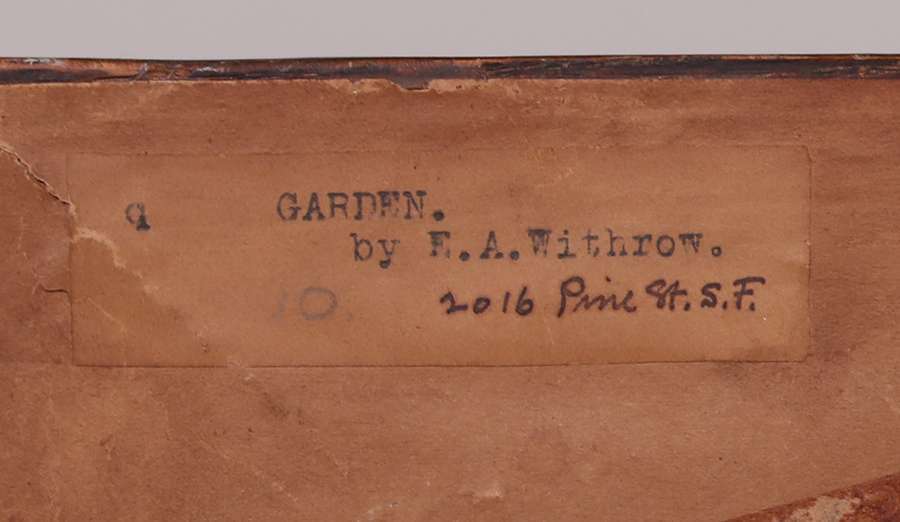 q GARDEN.
by E.A.Withrow.
10. 2016 Pine St. S.F.